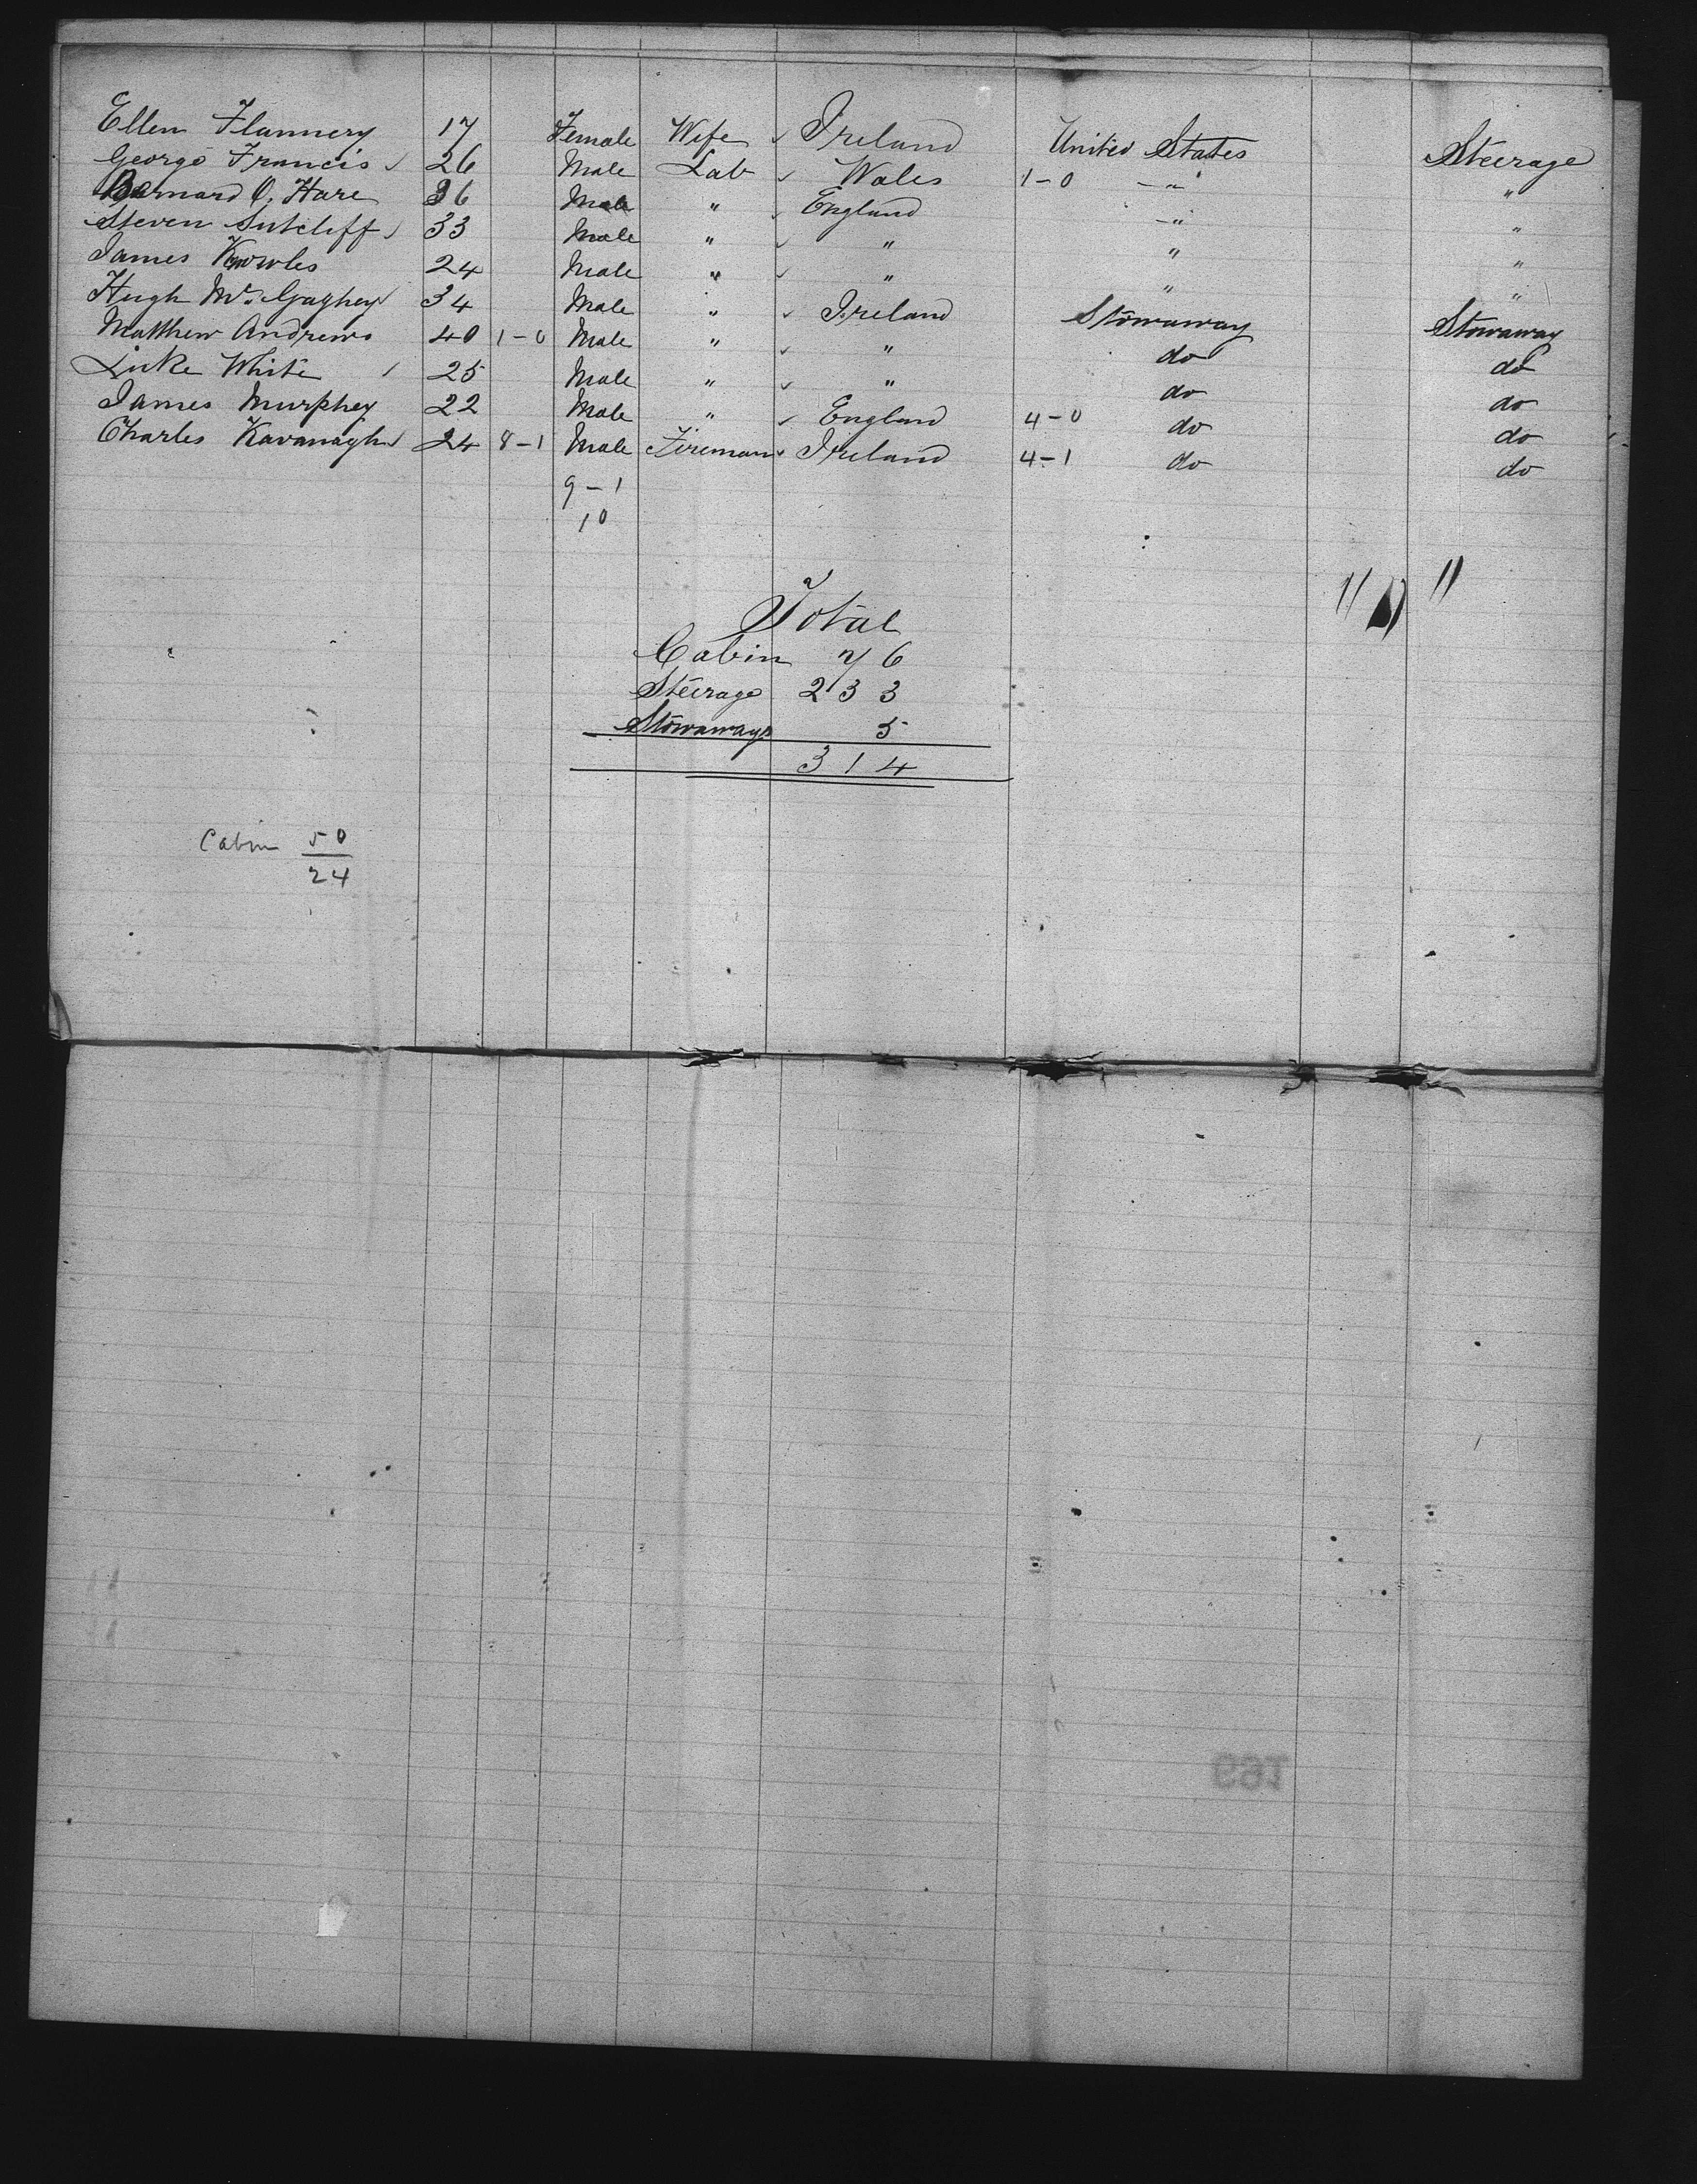 Ellen Flannery 17 Female Wife ✓ Ireland United States Steerage
George Francis ✓ 26 Male Lab ✓ Wales 1-0 -"- "
Bernard O. Hare 36 Male " ✓ England -"- "
Steven Sutcliff ✓ 33 Male " ✓ " " "
James Knowles 24 Male " ✓ " " "
Hugh Mc. Gaghey 34 Male " ✓ Ireland Stowaway Stowaway
Matthew Andrews 40 1-0 Male " ✓ " do do
Luke White ✓ 25 Male " ✓ " do do
James Murphey 22 Male " ✓ England 4-0 do do
Charles Kavanagh 24 8-1 Male Fireman ✓ Ireland 4-1 do do
9-1
10
Total
Cabin 76
Steerage 233
Stowaways 5
314
Cabin 50
24
169